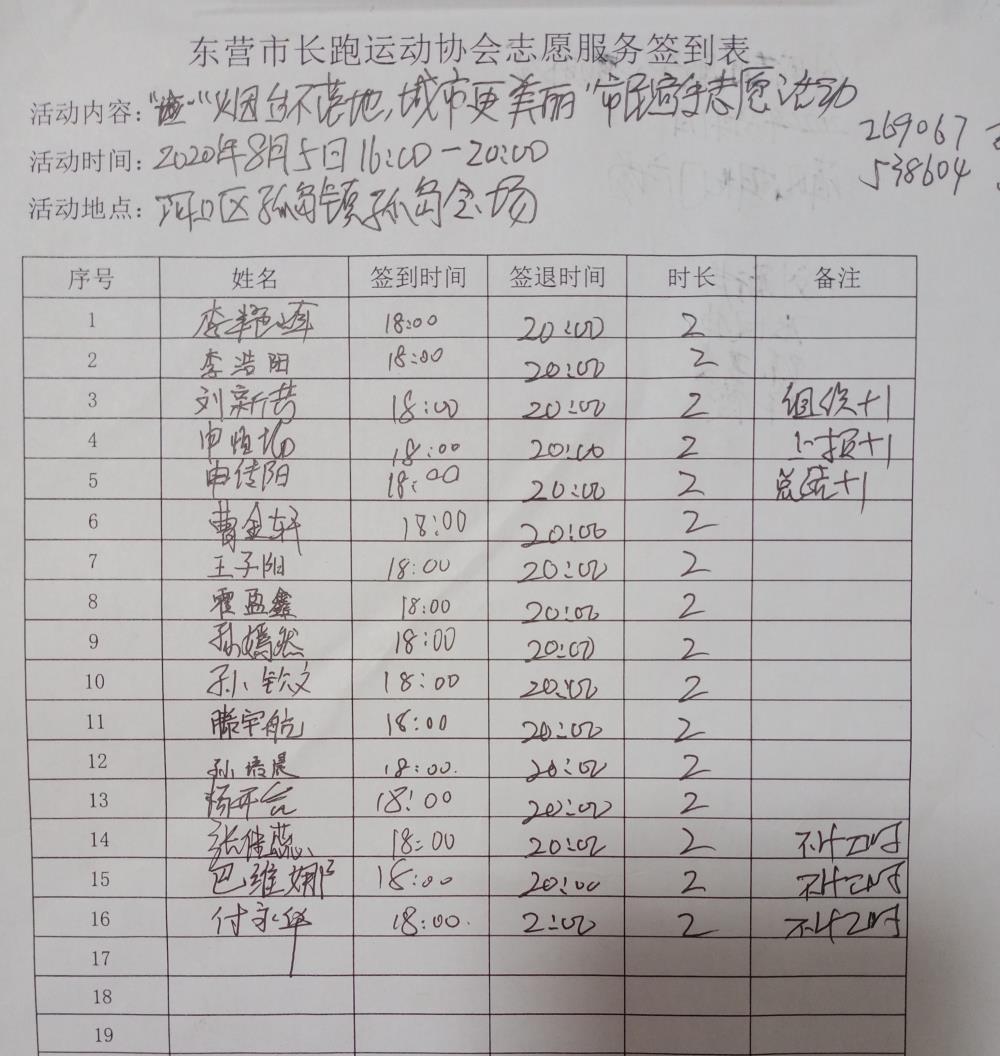 东营市长跑运动协会志愿服务签到表
活动内容："烟台不落地,城市更美丽"市民携手志愿活动
269067
活动时间：2020年8月5日16:00-20:00
538604
活动地点：河口区孤岛镇孤岛会场
序号 姓名 签到时间 签退时间 时长 备注
1 李 18:00 20:00 2
2 李浩阳 18:00 20:00 2
3 刘新芸 18:00 20:00 2 组织+1
4 申恒 18:00 20:00 2 上报+1
5 申传阳 18:00 20:00 2 总结+1
6 曹金轩 18:00 20:00 2
7 王子阳 18:00 20:00 2
8 霍盈鑫 18:00 20:00 2
9 孙嫣然 18:00 20:00 2
10 孙钦文 18:00 20:00 2
11 滕宇航 18:00 20:00 2
12 孙晨 18:00. 20:00 2
13 杨开 18:00 20:00 2
14 张佳蕊 18:00 20:00 2 不计工时
15 巴维娜 18:00 20:00 2 不计工时
16 付永华 18:00. 2:00 2 不计工时
17
18
19